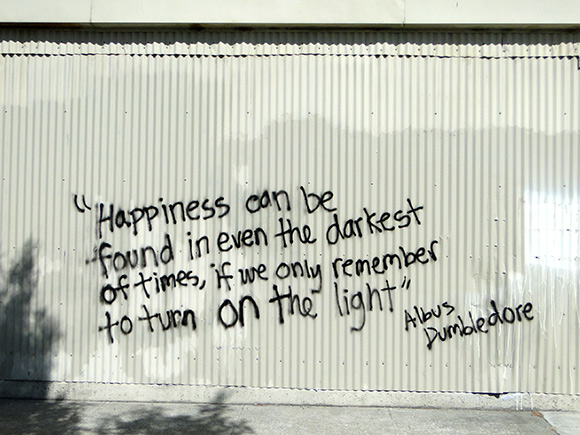 "Happiness can be
found in even the darkest
of times, if we only remember
to turn on the light"
Albus
Dumbledore